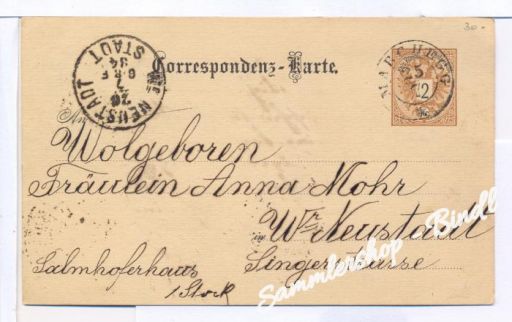 30.-
Correspondenz-Karte.
MARCHEGG
25
12
WR. NEUSTADT
STADT
An
Wolgeboren
Fräulein Anna Mohr
in Wr Neustadt
Salmhoferhaus Singergasse
1 Stock
Sammlershop - Bindl